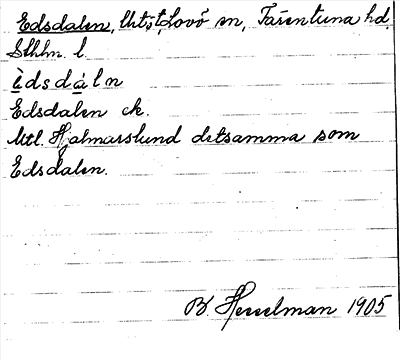 Edsdalen, Uht.st, Lovö sn, Färentuna hd.
Sthlm. l.
èdsdáln
Edsdalen ek.
Utl. Hjalmarslund detsamma som
Edsdalen.
B. Hesselman 1905